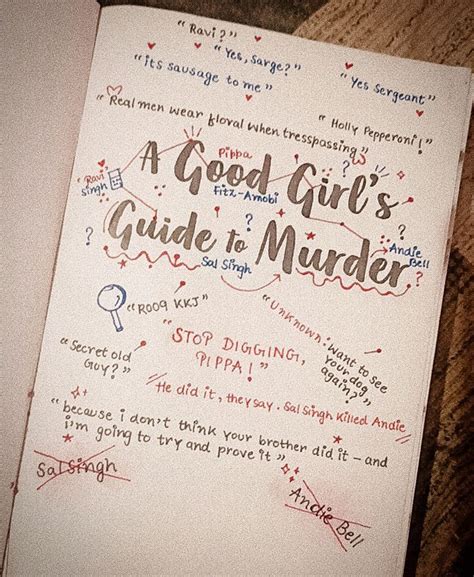 "Ravi?"
"Yes, Sarge?"
"its sausage to me"
"Yes Sergeant"
"Real men wear floral when tresspassing"
"Holly Pepperoni!"
Pippa
A Good Girl's
"Ravi Singh
Fitz-Amobi
?
?
?
?
Guide to Murder
Andie Bell
Sal Singh
?
"R009 KKJ"
"Unknown: Want to see
your dog
again?"
"Secret old
Guy?"
"STOP DIGGING,
PIPPA!"
He did it, they say. Sal Singh Killed Andie
"because i don't think your brother did it – and
i'm going to try and prove it"
Sal Singh
Andie Bell